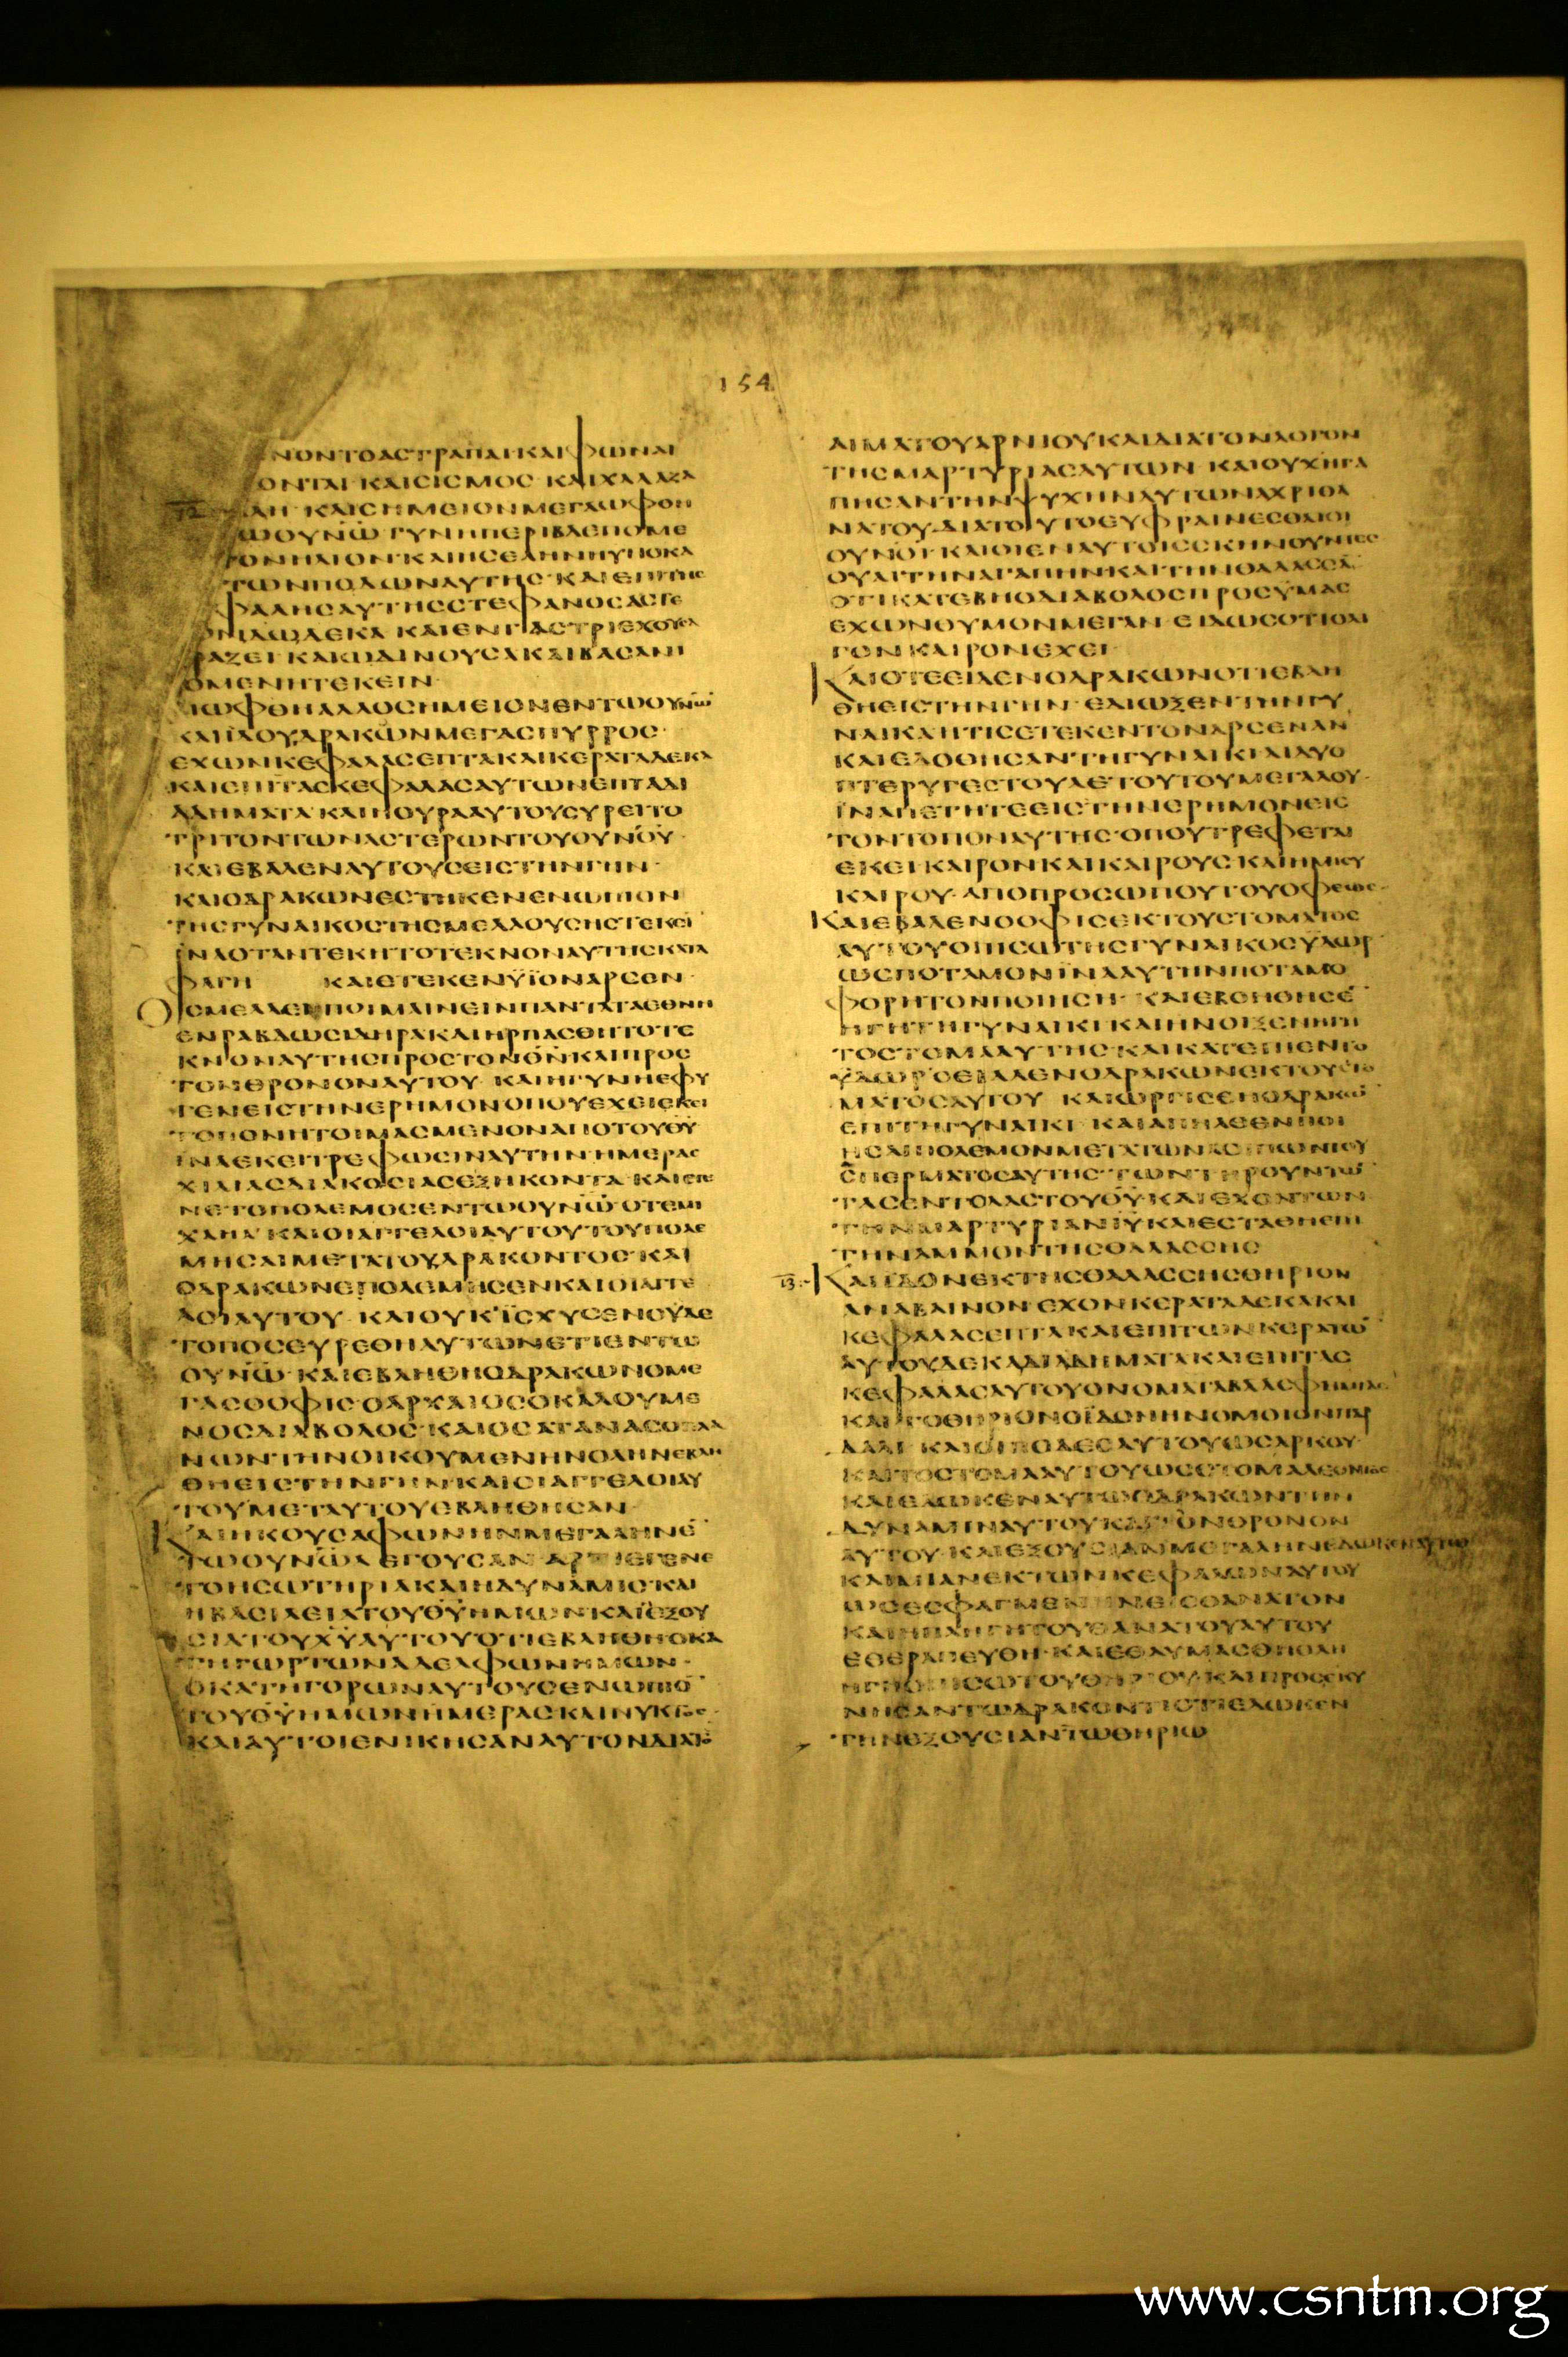 154
ΝΟΝΤΟΑΣΤΡΑΠΑΙΚΑΙΦΩΝΑΙ
ΟΝΤΑΙ ΚΑΙΣΙΣΜΟΣ ΚΑΙΧΑΛΑΖΑ
ΛΗ ΚΑΙΣΗΜΕΙΟΝΜΕΓΑΩΦΘΗ
ΩΟΥΝΩ ΓΥΝΗΠΕΡΙΒΛΕΠΟΜΕ
ΤΟΝΗΛΙΟΝ ΚΑΙΗΣΕΛΗΝΗΥΠΟΚΑ
ΤΩΝΠΟΔΩΝΑΥΤΗΣ ΚΑΙΕΠΙΤΗΣ
ΦΑΛΗΣΑΥΤΗΣΣΤΕΦΑΝΟΣΑΣΤΕ
ΡΩΝΔΩΔΕΚΑ ΚΑΙΕΝΓΑΣΤΡΙΕΧΟΥΣΑ
ΡΑΖΕΙ ΚΑΙΩΔΙΝΟΥΣΑΚΑΙΒΑΣΑΝΙ
ΟΜΕΝΗΤΕΚΕΙΝ
ΚΑΙΩΦΘΗΑΛΛΟΣΗΜΕΙΟΝΕΝΤΩΟΥΝΩ
ΚΑΙΪΔΟΥΔΡΑΚΩΝΜΕΓΑΣΠΥΡΡΟΣ
ΕΧΩΝΚΕΦΑΛΑΣΕΠΤΑΚΑΙΚΕΡΑΤΑΔΕΚΑ
ΚΑΙΕΠΙΤΑΣΚΕΦΑΛΑΣΑΥΤΩΝΕΠΤΑΔΙ
ΑΔΗΜΑΤΑ ΚΑΙΗΟΥΡΑΑΥΤΟΥΣΥΡΕΙΤΟ
ΤΡΙΤΟΝΤΩΝΑΣΤΕΡΩΝΤΟΥΟΥΝΟΥ
ΚΑΙΕΒΑΛΕΝΑΥΤΟΥΣΕΙΣΤΗΝΓΗΝ
ΚΑΙΟΔΡΑΚΩΝΕΣΤΗΚΕΝΕΝΩΠΙΟΝ
ΤΗΣΓΥΝΑΙΚΟΣΤΗΣΜΕΛΛΟΥΣΗΣΤΕΚΕΙ
ΪΝΑΟΤΑΝΤΕΚΗΤΟΤΕΚΝΟΝΑΥΤΗΣΚΑΤΑ
ΦΑΓΗ ΚΑΙΕΤΕΚΕΝΥΪΟΝΑΡΣΕΝ
ΟΣΜΕΛΛΕΙΠΟΙΜΑΙΝΕΙΝΠΑΝΤΑΤΑΕΘΝΗ
ΕΝΡΑΒΔΩΣΙΔΗΡΑΚΑΙΗΡΠΑΣΘΗΤΟΤΕ
ΚΝΟΝΑΥΤΗΣΠΡΟΣΤΟΝΘΝΚΑΙΠΡΟΣ
ΤΟΝΘΡΟΝΟΝΑΥΤΟΥ ΚΑΙΗΓΥΝΗΕΦΥ
ΓΕΝΕΙΣΤΗΝΕΡΗΜΟΝΟΠΟΥΕΧΕΙΕΚΕΙ
ΤΟΠΟΝΗΤΟΙΜΑΣΜΕΝΟΝΑΠΟΤΟΥΘΥ
ΙΝΑΕΚΕΙΤΡΕΦΩΣΙΝΑΥΤΗΝΗΜΕΡΑΣ
ΧΙΛΙΑΣΔΙΑΚΟΣΙΑΣΕΞΗΚΟΝΤΑ ΚΑΙΕΓΕ
ΝΕΤΟΠΟΛΕΜΟΣΕΝΤΩΟΥΝΩ ΟΤΕΜΙ
ΧΑΗΛ ΚΑΙΟΙΑΓΓΕΛΟΙΑΥΤΟΥΤΟΥΠΟΛΕ
ΜΗΣΑΙΜΕΤΑΤΟΥΔΡΑΚΟΝΤΟΣ ΚΑΙ
ΟΔΡΑΚΩΝΕΠΟΛΕΜΗΣΕΝΚΑΙΟΙΑΓΓΕ
ΛΟΙΑΥΤΟΥ ΚΑΙΟΥΚΪΣΧΥΣΕΝΟΥΔΕ
ΤΟΠΟΣΕΥΡΕΘΗΑΥΤΩΝΕΤΙΕΝΤΩ
ΟΥΝΩ ΚΑΙΕΒΛΗΘΗΟΔΡΑΚΩΝΟΜΕ
ΓΑΣΟΟΦΙΣ ΟΑΡΧΑΙΟΣΟΚΑΛΟΥΜΕ
ΝΟΣΔΙΑΒΟΛΟΣ ΚΑΙΟΣΑΤΑΝΑΣΟΠΛΑ
ΝΩΝΤΗΝΟΙΚΟΥΜΕΝΗΝΟΛΗΝΕΒΛΗ
ΘΗΕΙΣΤΗΝΓΗΝΚΑΙΟΙΑΓΓΕΛΟΙΑΥ
ΤΟΥΜΕΤΑΥΤΟΥΕΒΛΗΘΗΣΑΝ
ΚΑΙΗΚΟΥΣΑΦΩΝΗΝΜΕΓΑΛΗΝΕ
ΤΩΟΥΝΩΛΕΓΟΥΣΑΝ ΑΡΤΙΕΓΕΝΕ
ΤΟΗΣΩΤΗΡΙΑΚΑΙΗΔΥΝΑΜΙΣ ΚΑΙ
ΗΒΑΣΙΛΕΙΑΤΟΥΘΥΗΜΩΝΚΑΙΕΞΟΥ
ΣΙΑΤΟΥΧΥΑΥΤΟΥΟΤΙΕΒΛΗΘΗΟΚΑ
ΤΗΓΩΡΤΩΝΑΔΕΛΦΩΝΗΜΩΝ
ΟΚΑΤΗΓΟΡΩΝΑΥΤΟΥΣΕΝΩΠΙΟ
ΤΟΥΘΥΗΜΩΝΗΜΕΡΑΣΚΑΙΝΥΚΤΟΣ
ΚΑΙΑΥΤΟΙΕΝΙΚΗΣΑΝΑΥΤΟΝΔΙΑΤΟ
ΑΙΜΑΤΟΥΑΡΝΙΟΥΚΑΙΔΙΑΤΟΝΛΟΓΟΝ
ΤΗΣΜΑΡΤΥΡΙΑΣΑΥΤΩΝ ΚΑΙΟΥΧΗΓΑ
ΠΗΣΑΝΤΗΝΨΥΧΗΝΑΥΤΩΝΑΧΡΙΘΑ
ΝΑΤΟΥ ΔΙΑΤΟΥΤΟΕΥΦΡΑΙΝΕΣΘΑΙΟΙ
ΟΥΝΟΙ ΚΑΙΟΙΕΝΑΥΤΟΙΣΣΚΗΝΟΥΝΤΕΣ
ΟΥΑΙΤΗΝΑΓΑΠΗΝΚΑΙΤΗΝΘΑΛΑΣΣΑ
ΟΤΙΚΑΤΕΒΗΟΔΙΑΒΟΛΟΣΠΡΟΣΥΜΑΣ
ΕΧΩΝΘΥΜΟΝΜΕΓΑΝ ΕΙΔΩΣΟΤΙΟΛΙ
ΓΟΝΚΑΙΡΟΝΕΧΕΙ
ΚΑΙΟΤΕΕΙΔΕΝΟΔΡΑΚΩΝΟΤΙΕΒΛΗ
ΘΗΕΙΣΤΗΝΓΗΝ ΕΔΙΩΞΕΝΤΗΝΓΥ
ΝΑΙΚΑΗΤΙΣΕΤΕΚΕΝΤΟΝΑΡΣΕΝΑΝ
ΚΑΙΕΔΟΘΗΣΑΝΤΗΓΥΝΑΙΚΙΑΙΔΥΟ
ΠΤΕΡΥΓΕΣΤΟΥΑΕΤΟΥΤΟΥΜΕΓΑΛΟΥ
ΪΝΑΠΕΤΗΤΕΕΙΣΤΗΝΕΡΗΜΟΝΕΙΣ
ΤΟΝΤΟΠΟΝΑΥΤΗΣ ΟΠΟΥΤΡΕΦΕΤΑΙ
ΕΚΕΙΚΑΙΡΟΝΚΑΙΚΑΙΡΟΥΣ ΚΑΙΗΜΙΣΥ
ΚΑΙΡΟΥ ΑΠΟΠΡΟΣΩΠΟΥΤΟΥΟΦΕΩΣ
ΚΑΙΕΒΑΛΕΝΟΟΦΙΣΕΚΤΟΥΣΤΟΜΑΤΟΣ
ΑΥΤΟΥΟΠΙΣΩΤΗΣΓΥΝΑΙΚΟΣΥΔΩΡ
ΩΣΠΟΤΑΜΟΝΪΝΑΑΥΤΗΝΠΟΤΑΜΟ
ΦΟΡΗΤΟΝΠΟΙΗΣΗ ΚΑΙΕΒΟΗΘΗΣΕ
ΗΓΗΤΗΓΥΝΑΙΚΙ ΚΑΙΗΝΟΙΞΕΝΗΓΗ
ΤΟΣΤΟΜΑΑΥΤΗΣ ΚΑΙΚΑΤΕΠΙΕΝΤΟ
ΥΔΩΡΟΕΒΑΛΕΝΟΔΡΑΚΩΝΕΚΤΟΥΣΤΟ
ΜΑΤΟΣΑΥΤΟΥ ΚΑΙΩΡΓΙΣΕΝΟΔΡΑΚΩ
ΕΠΙΤΗΓΥΝΑΙΚΙ ΚΑΙΑΠΗΛΘΕΝΠΟΙ
ΗΣΑΙΠΟΛΕΜΟΝΜΕΤΑΤΩΝΛΟΙΠΩΝΤΟΥ
ΣΠΕΡΜΑΤΟΣΑΥΤΗΣ ΤΩΝΤΗΡΟΥΝΤΩ
ΤΑΣΕΝΤΟΛΑΣΤΟΥΘΥ ΚΑΙΕΧΟΝΤΩΝ
ΤΗΝΜΑΡΤΥΡΙΑΝΙΥ ΚΑΙΕΣΤΑΘΗΕΠΙ
ΤΗΝΑΜΜΟΝΤΗΣΘΑΛΑΣΣΗΣ
13 ΚΑΙΪΔΟΝΕΚΤΗΣΘΑΛΑΣΣΗΣΘΗΡΙΟΝ
ΑΝΑΒΑΙΝΟΝ ΕΧΟΝΚΕΡΑΤΑΔΕΚΑΚΑΙ
ΚΕΦΑΛΑΣΕΠΤΑΚΑΙΕΠΙΤΩΝΚΕΡΑΤΩ
ΑΥΤΟΥΔΕΚΑΔΙΑΔΗΜΑΤΑΚΑΙΕΠΙΤΑΣ
ΚΕΦΑΛΑΣΑΥΤΟΥΟΝΟΜΑΤΑΒΛΑΣΦΗΜΙΑΣ
ΚΑΙΤΟΘΗΡΙΟΝΟΪΔΟΝΗΝΟΜΟΙΟΝΠΑΡ
ΔΑΛΙ ΚΑΙΟΙΠΟΔΕΣΑΥΤΟΥΩΣΑΡΚΟΥ
ΚΑΙΤΟΣΤΟΜΑΑΥΤΟΥΩΣΣΤΟΜΑΛΕΟΝΤΟΣ
ΚΑΙΕΔΩΚΕΝΑΥΤΩΟΔΡΑΚΩΝΤΗΝ
ΔΥΝΑΜΙΝΑΥΤΟΥΚΑΙΤΟΝΘΡΟΝΟΝ
ΑΥΤΟΥ ΚΑΙΕΞΟΥΣΙΑΝΜΕΓΑΛΗΝΕΔΩΚΕΝΑΥΤΩ
ΚΑΙΜΙΑΝΕΚΤΩΝΚΕΦΑΛΩΝΑΥΤΟΥ
ΩΣΕΣΦΑΓΜΕΝΗΝΕΙΣΘΑΝΑΤΟΝ
ΚΑΙΗΠΛΗΓΗΤΟΥΘΑΝΑΤΟΥΑΥΤΟΥ
ΕΘΕΡΑΠΕΥΘΗ ΚΑΙΕΘΑΥΜΑΣΘΗΟΛΗ
ΗΓΗΟΠΙΣΩΤΟΥΘΗΡΙΟΥ ΚΑΙΠΡΟΣΕΚΥ
ΝΗΣΑΝΤΩΔΡΑΚΟΝΤΙΟΤΙΕΔΩΚΕΝ
ΤΗΝΕΞΟΥΣΙΑΝΤΩΘΗΡΙΩ
www.csntm.org